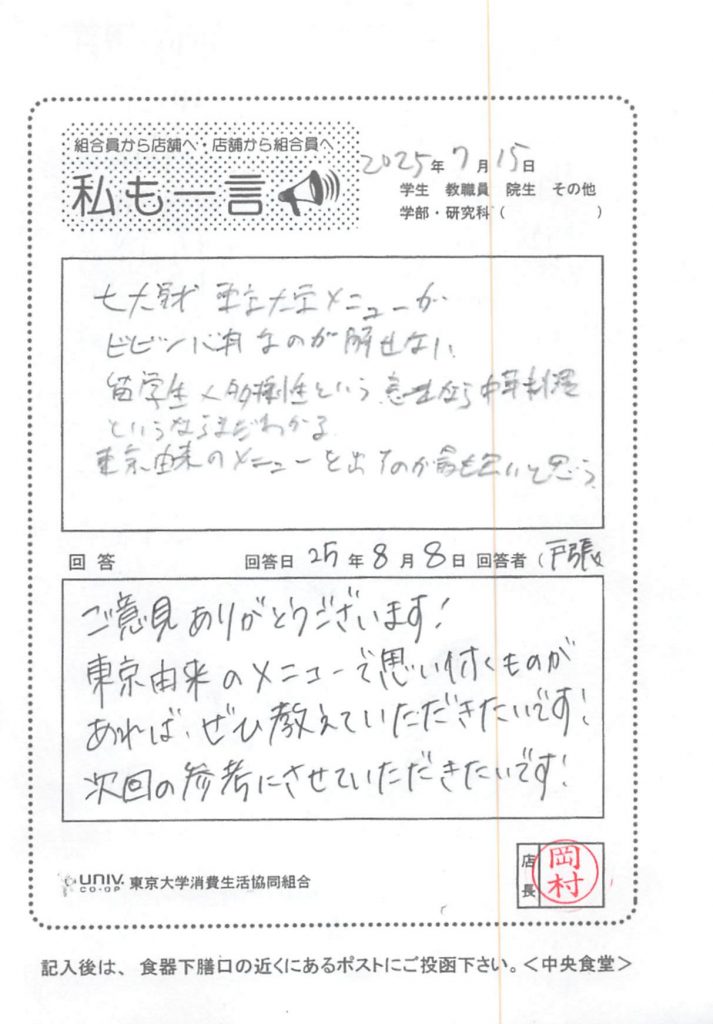 組合員から店舗へ・店舗から組合員へ
私も一言
2025年7月15日
学生 教職員 院生 その他
学部・研究科（ ）
七大戦 東京大学メニューが
ビビンバ丼なのが解せない
留学生 多種性という意味なら中華料理
というならまだわかる
東京由来のメニューを出すのが最も良いと思う
回答 回答日 25年8月8日 回答者（戸張
ご意見ありがとうございます!
東京由来のメニューで思い付くものが
あれば、ぜひ教えていただきたいです!
次回の参考にさせていただきたいです!
UNIV. CO-OP 東京大学消費生活協同組合
店長 岡村
記入後は、食器下膳口の近くにあるポストにご投函下さい。＜中央食堂＞